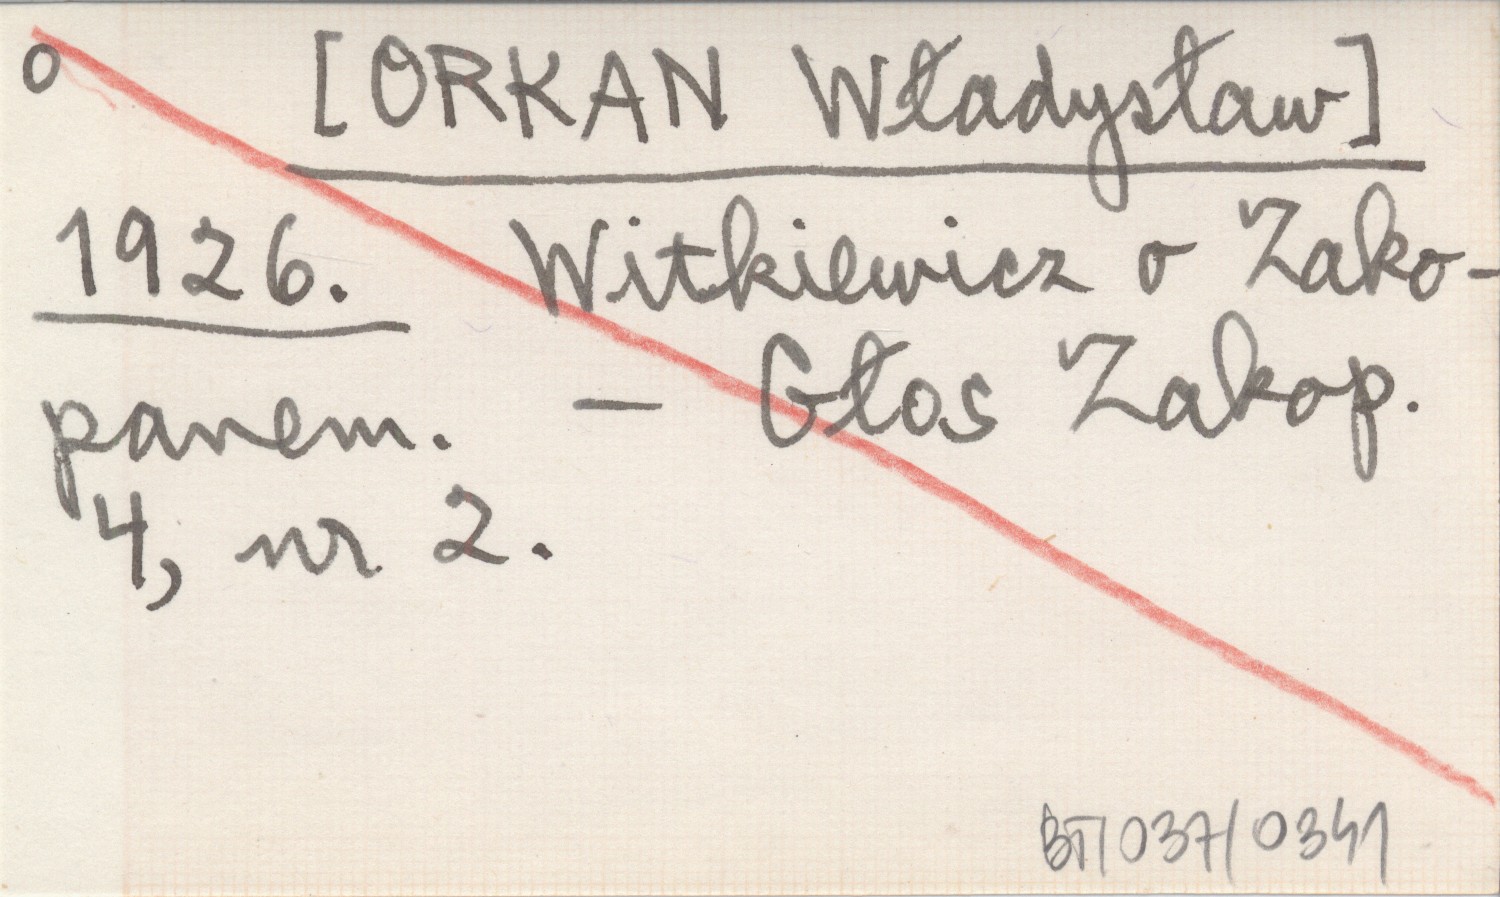 o [ORKAN Władysław]
1926. Witkiewicz o Zako-
panem. — Głos Zakop.
4, nr 2.
BT/037/0341